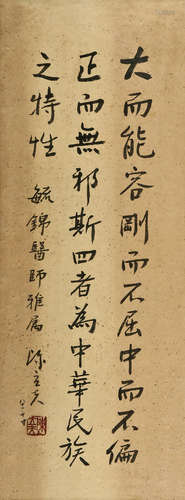 大而能容剛而不屈中而不偏
正而無邪斯四者為中華民族
之特性
毓錦醫師雅屬 陳立夫